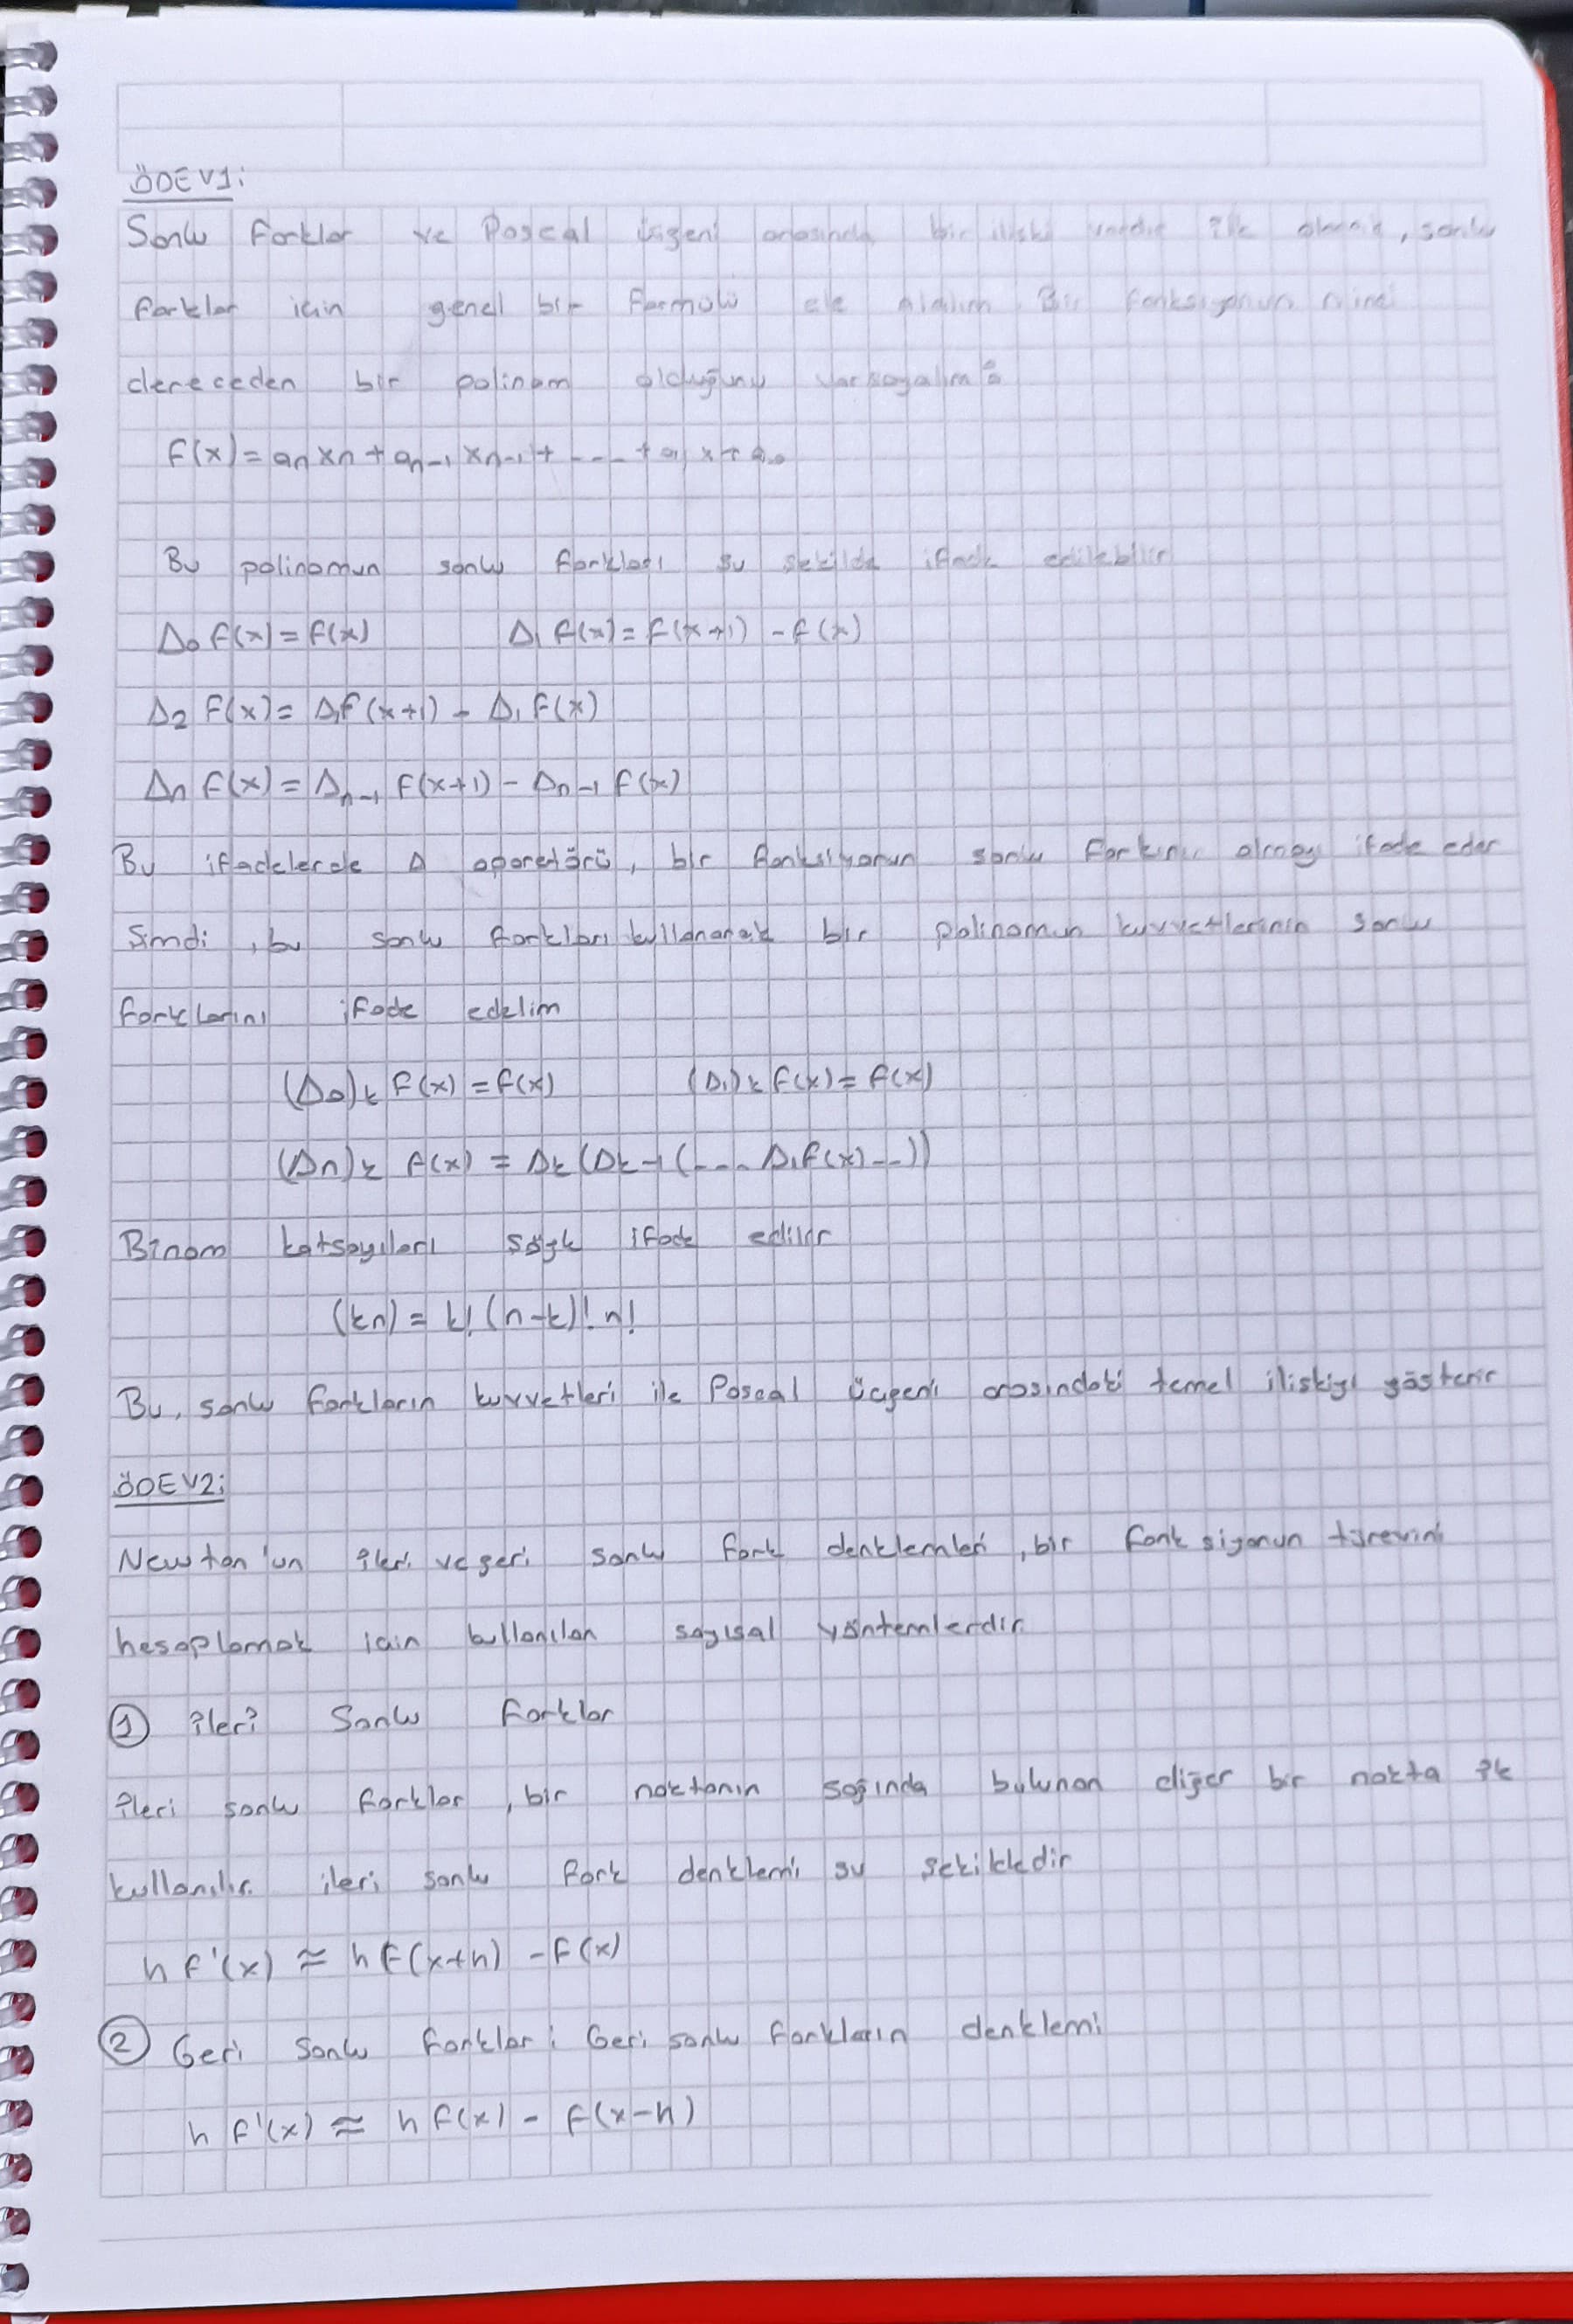 ÖDEV1:
Sonlu farklar ve Pascal üçgeni arasında bir ilişki vardır ilk olarak, sonlu
farklar için genel bir formülü ele alalım. Bir fonksiyonun n'inci
dereceden bir polinom olduğunu varsayalım:
f(x) = an xn + an-1 xn-1 + .... + a1 x + a0
Bu polinomun sonlu farkları şu şekilde ifade edilebilir
Δ0 f(x) = f(x) Δ1 f(x) = f(x+1) - f(x)
Δ2 f(x) = Δ1f(x+1) - Δ1 f(x)
Δn f(x) = Δn-1 f(x+1) - Δn-1 f(x)
Bu ifadelerde Δ operatörü, bir fonksiyonun sonlu farkını almayı ifade eder
Simdi, bu sonlu farkları kullanarak bir polinomun kuvvetlerinin sonlu
farklarını ifade edelim
(Δ0)k f(x) = f(x) (Δ1)k f(x) = f(x)
(Δn)k f(x) = Δk(Δk-1(.... Δ1f(x)...))
Binom katsayıları şöyle ifade edilir
(kn) = k!(n-k)!n!
Bu, sonlu farkların kuvvetleri ile Pascal üçgeni arasındaki temel iliskiyi gösterir
ÖDEV2:
Newton'un ileri ve geri sonlu fark denklemleri, bir fonksiyonun türevini
hesaplamak için kullanılan sayısal yöntemlerdir.
1 ileri Sonlu Farklar
ileri sonlu farklar, bir noktanın sağında bulunan diğer bir nokta ile
kullanılır. ileri sonlu fark denklemi şu şekildedir
h f'(x) ≈ h f(x+h) - f(x)
2 Geri Sonlu farklar: Geri sonlu farkların denklemi
h f'(x) ≈ h f(x) - f(x-h)